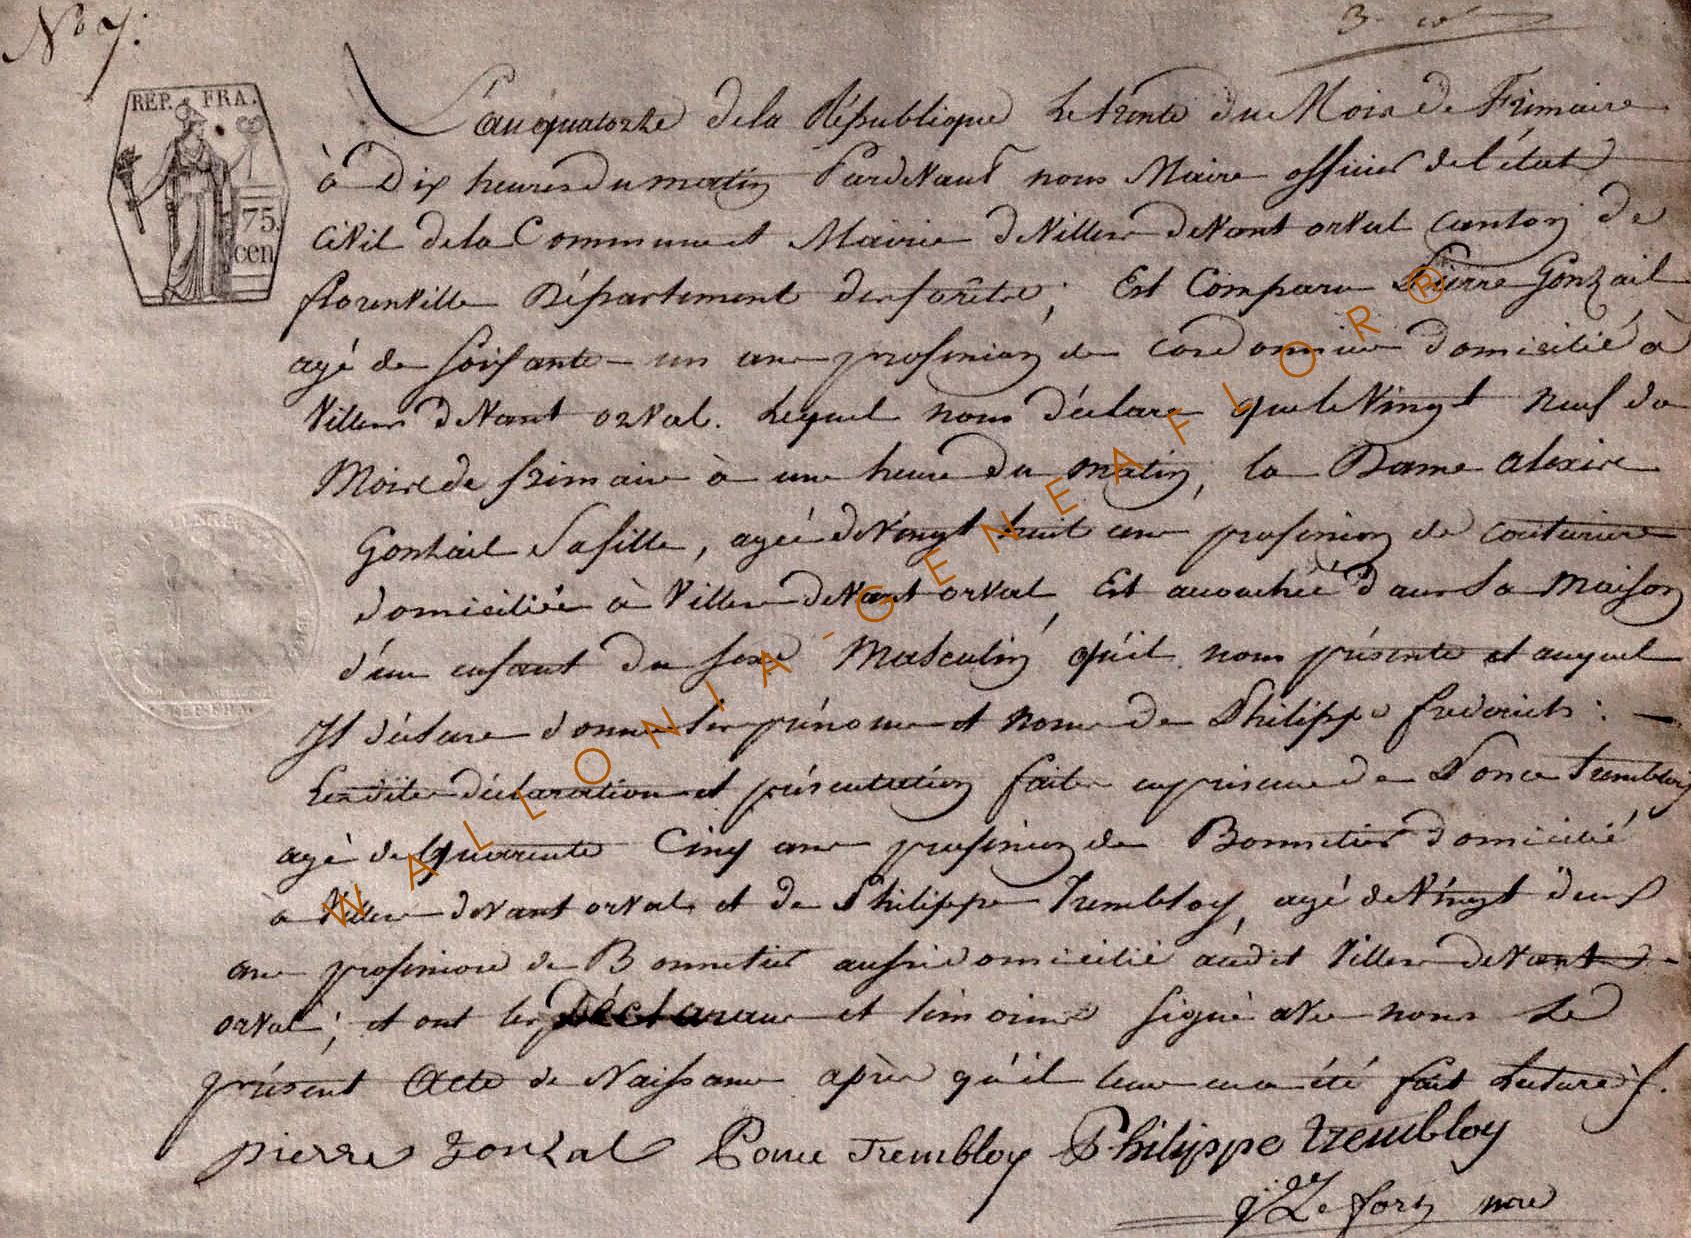 No 7.
REP. FRA.
75.
cen
L'an quatorze de la République Le trente du Mois de Frimaire
à Dix heures du matin Pardevant nous Maire officier de l'état
civil de la Commune et Mairie de Viller devant orval canton de
florenville Département des forêts; Est Comparu Pierre Gonzail
agé de soixante-un ans profession de cordonnier domicilié à
Viller devant orval. Lequel nous déclare que le Vingt neuf du
Mois de frimaire à une heure du matin, la Dame alexise
Gonzail sa fille, agée de vingt huit ans profession de couturiere
domiciliée à Viller devant orval, Est accouchée dans sa maison
d'un enfant du sexe Masculin qu'il nous présente et auquel
Il déclare donner les prénoms et nom de Philippe frederich: —
Lesdites déclaration et présentation faites en présence de Ponce Trembloy
agé de quarente Cinq ans profession de Bonnetier domicilié
à Viller devant orval et de Philippe Trembloy, agé de Vingt deux
ans profession de Bonnetier aussi domicilié audit Viller devant
orval; et ont les déclarant et témoins signé avec nous Le
présent Acte de Naissance après qu'il leur en a été fait Lecture
pierre gonzal Ponce Trembloy Philippe trembloy
Le fort mre
WALLONIA-GENEAFLOR®